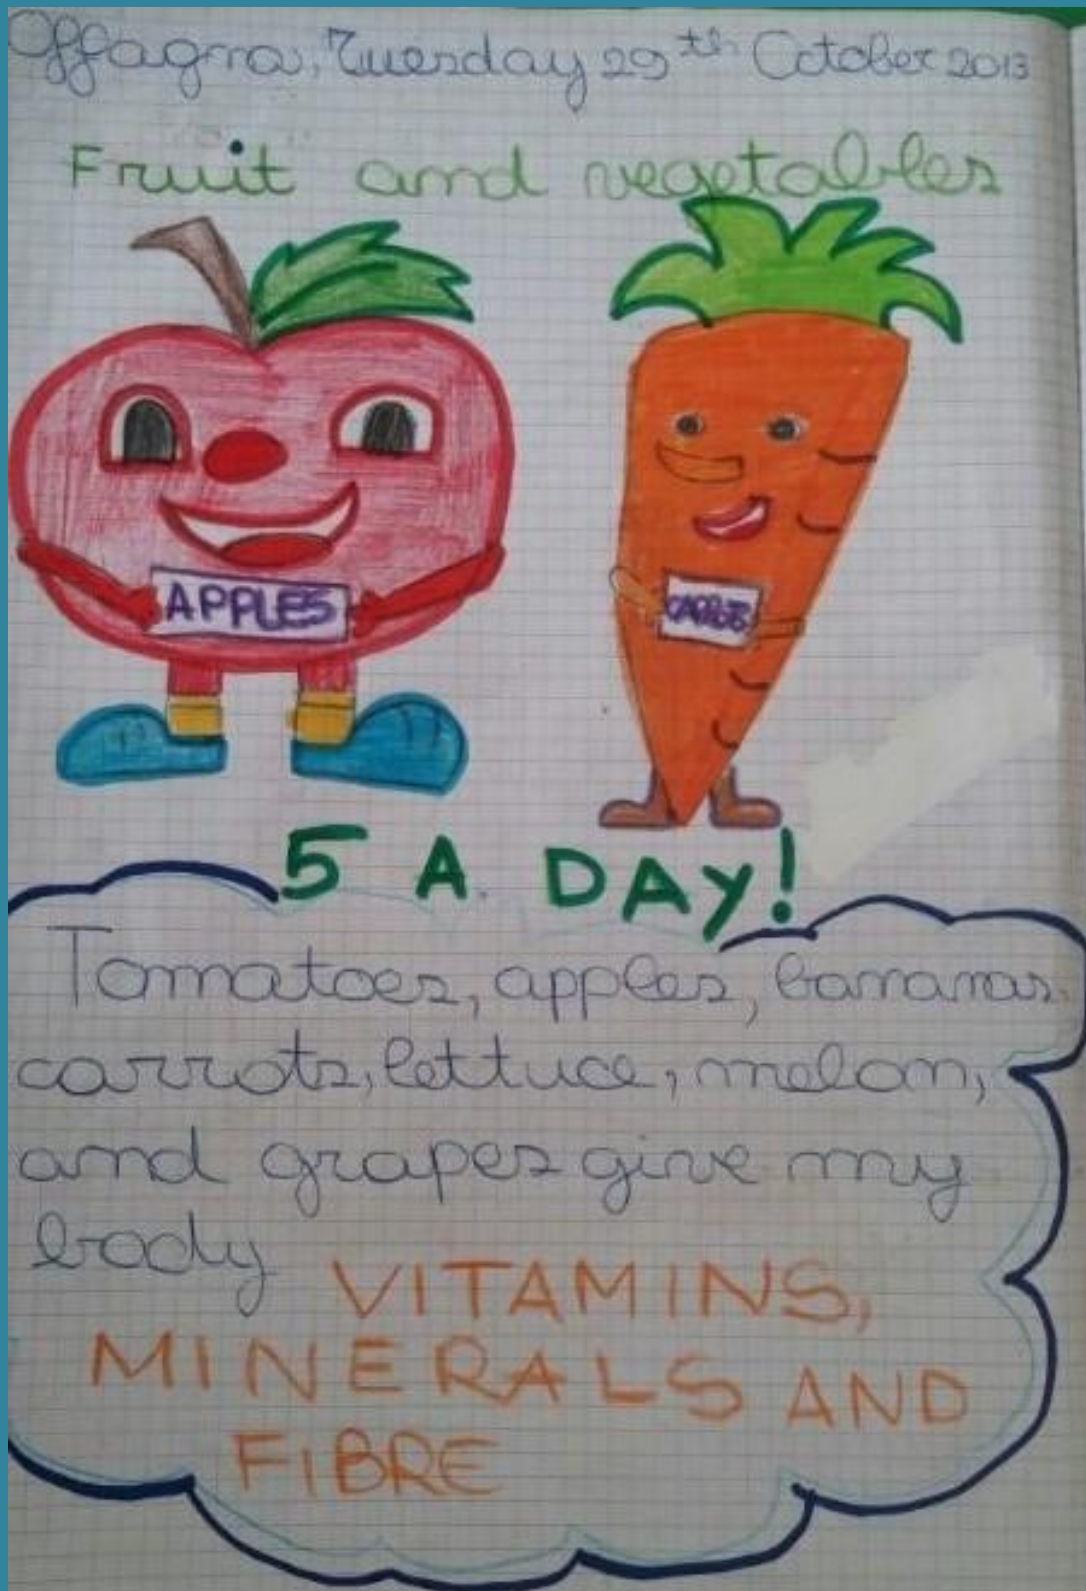 Offagna, Tuesday 29th October 2013
Fruit and vegetables
APPLES
CARROTS
5 A DAY!
Tomatoes, apples, bananas,
carrots, lettuce, melon,
and grapes give my
body VITAMINS,
MINERALS AND
FIBRE